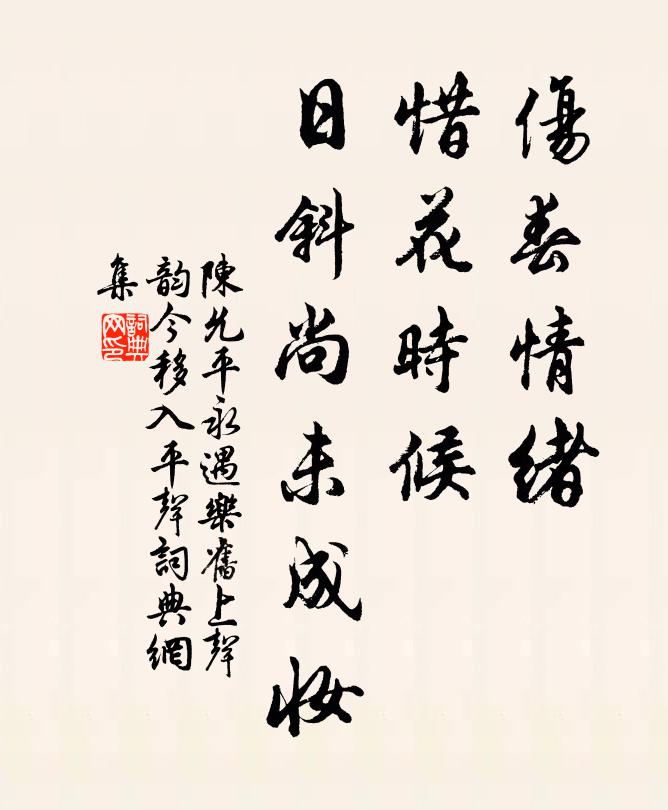 傷春情緒
惜花時候
日斜尚未成妝
陳允平永遇樂舊上聲
韵今移入平聲詞典網
集
詞典
网印